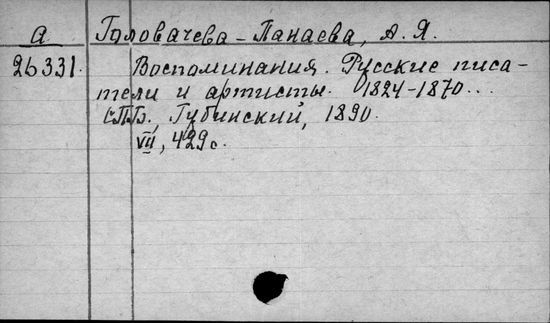 А Головачева-Панаева, А. Я.
26331. Воспоминания. Русские писа-
тели и артисты. 1824-1870...
СПБ, Губинский, 1890.
VII, 429 с.